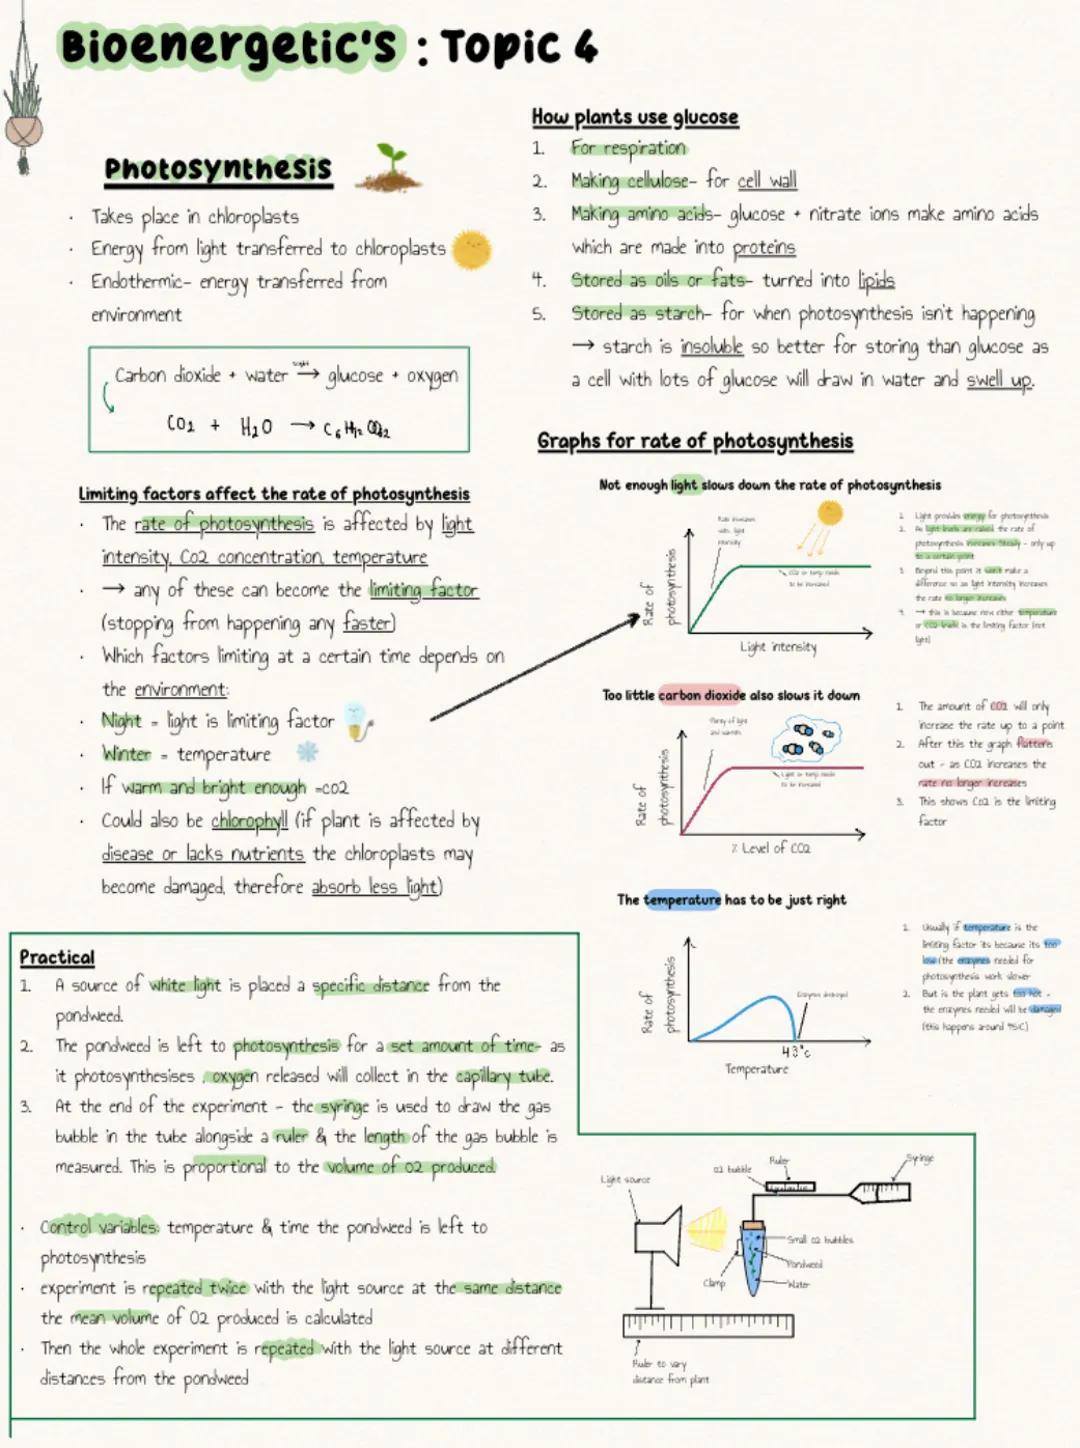 Bioenergetic's : Topic 4
Photosynthesis
· Takes place in chloroplasts
· Energy from light transferred to chloroplasts
· Endothermic- energy transferred from
environment
Carbon dioxide + water → glucose + oxygen
CO2 + H2O →
Limiting factors affect the rate of photosynthesis
· The rate of photosynthesis is affected by light
intensity, Co2 concentration, temperature
· → any of these can become the limiting factor
(stopping from happening any faster)
· Which factors limiting at a certain time depends on
the environment:
· Night = light is limiting factor
· Winter = temperature
· If warm and bright enough =co2
· Could also be chlorophyll (if plant is affected by
disease or lacks nutrients the chloroplasts may
become damaged, therefore absorb less light)
How plants use glucose
1. For respiration
2. Making cellulose- for cell wall
3. Making amino acids- glucose + nitrate ions make amino acids
which are made into proteins
4. Stored as oils or fats- turned into lipids
5. Stored as starch- for when photosynthesis isn't happening
→ starch is insoluble so better for storing than glucose as
a cell with lots of glucose will draw in water and swell up.
Graphs for rate of photosynthesis
Not enough light slows down the rate of photosynthesis
Rate increases
with light
intensity
CO2 or temp needs
to be increased
Rate of
photosynthesis
Light intensity
1. Light provides energy for photosynthesis
2. As light levels are raised the rate of
photosynthesis increases steady - only up
to a certain point
3. Beyond this point it won't make a
difference so as light intensity increases
the rate no longer increases
4. → this is because now either temperature
or CO2 levels is the limiting factor (not
light)
Too little carbon dioxide also slows it down
Plenty of light
and warmth
Light or temp needs
to be increased
Rate of
photosynthesis
% Level of CO2
1. The amount of CO2 will only
increase the rate up to a point
2. After this the graph flattens
out - as CO2 increases the
rate no longer increases
3. This shows Co2 is the limiting
factor
The temperature has to be just right
Rate of
photosynthesis
Enzymes destroyed
43°c
Temperature
1. Usually if temperature is the
limiting factor its because its too
low (the enzymes needed for
photosynthesis work slower
2. But is the plant gets too hot -
the enzymes needed will be damaged
(this happens around 45C)
Practical
1. A source of white light is placed a specific distance from the
pondweed.
2. The pondweed is left to photosynthesis for a set amount of time- as
it photosynthesises , oxygen released will collect in the capillary tube.
3. At the end of the experiment - the syringe is used to draw the gas
bubble in the tube alongside a ruler & the length of the gas bubble is
measured. This is proportional to the volume of O2 produced.
· Control variables: temperature & time the pondweed is left to
photosynthesis
· experiment is repeated twice with the light source at the same distance
the mean volume of O2 produced is calculated
· Then the whole experiment is repeated with the light source at different
distances from the pondweed
Light source
O2 bubble
Ruler
Syringe
Small O2 bubbles
Pondweed
Water
Clamp
Ruler to vary
distance from plant